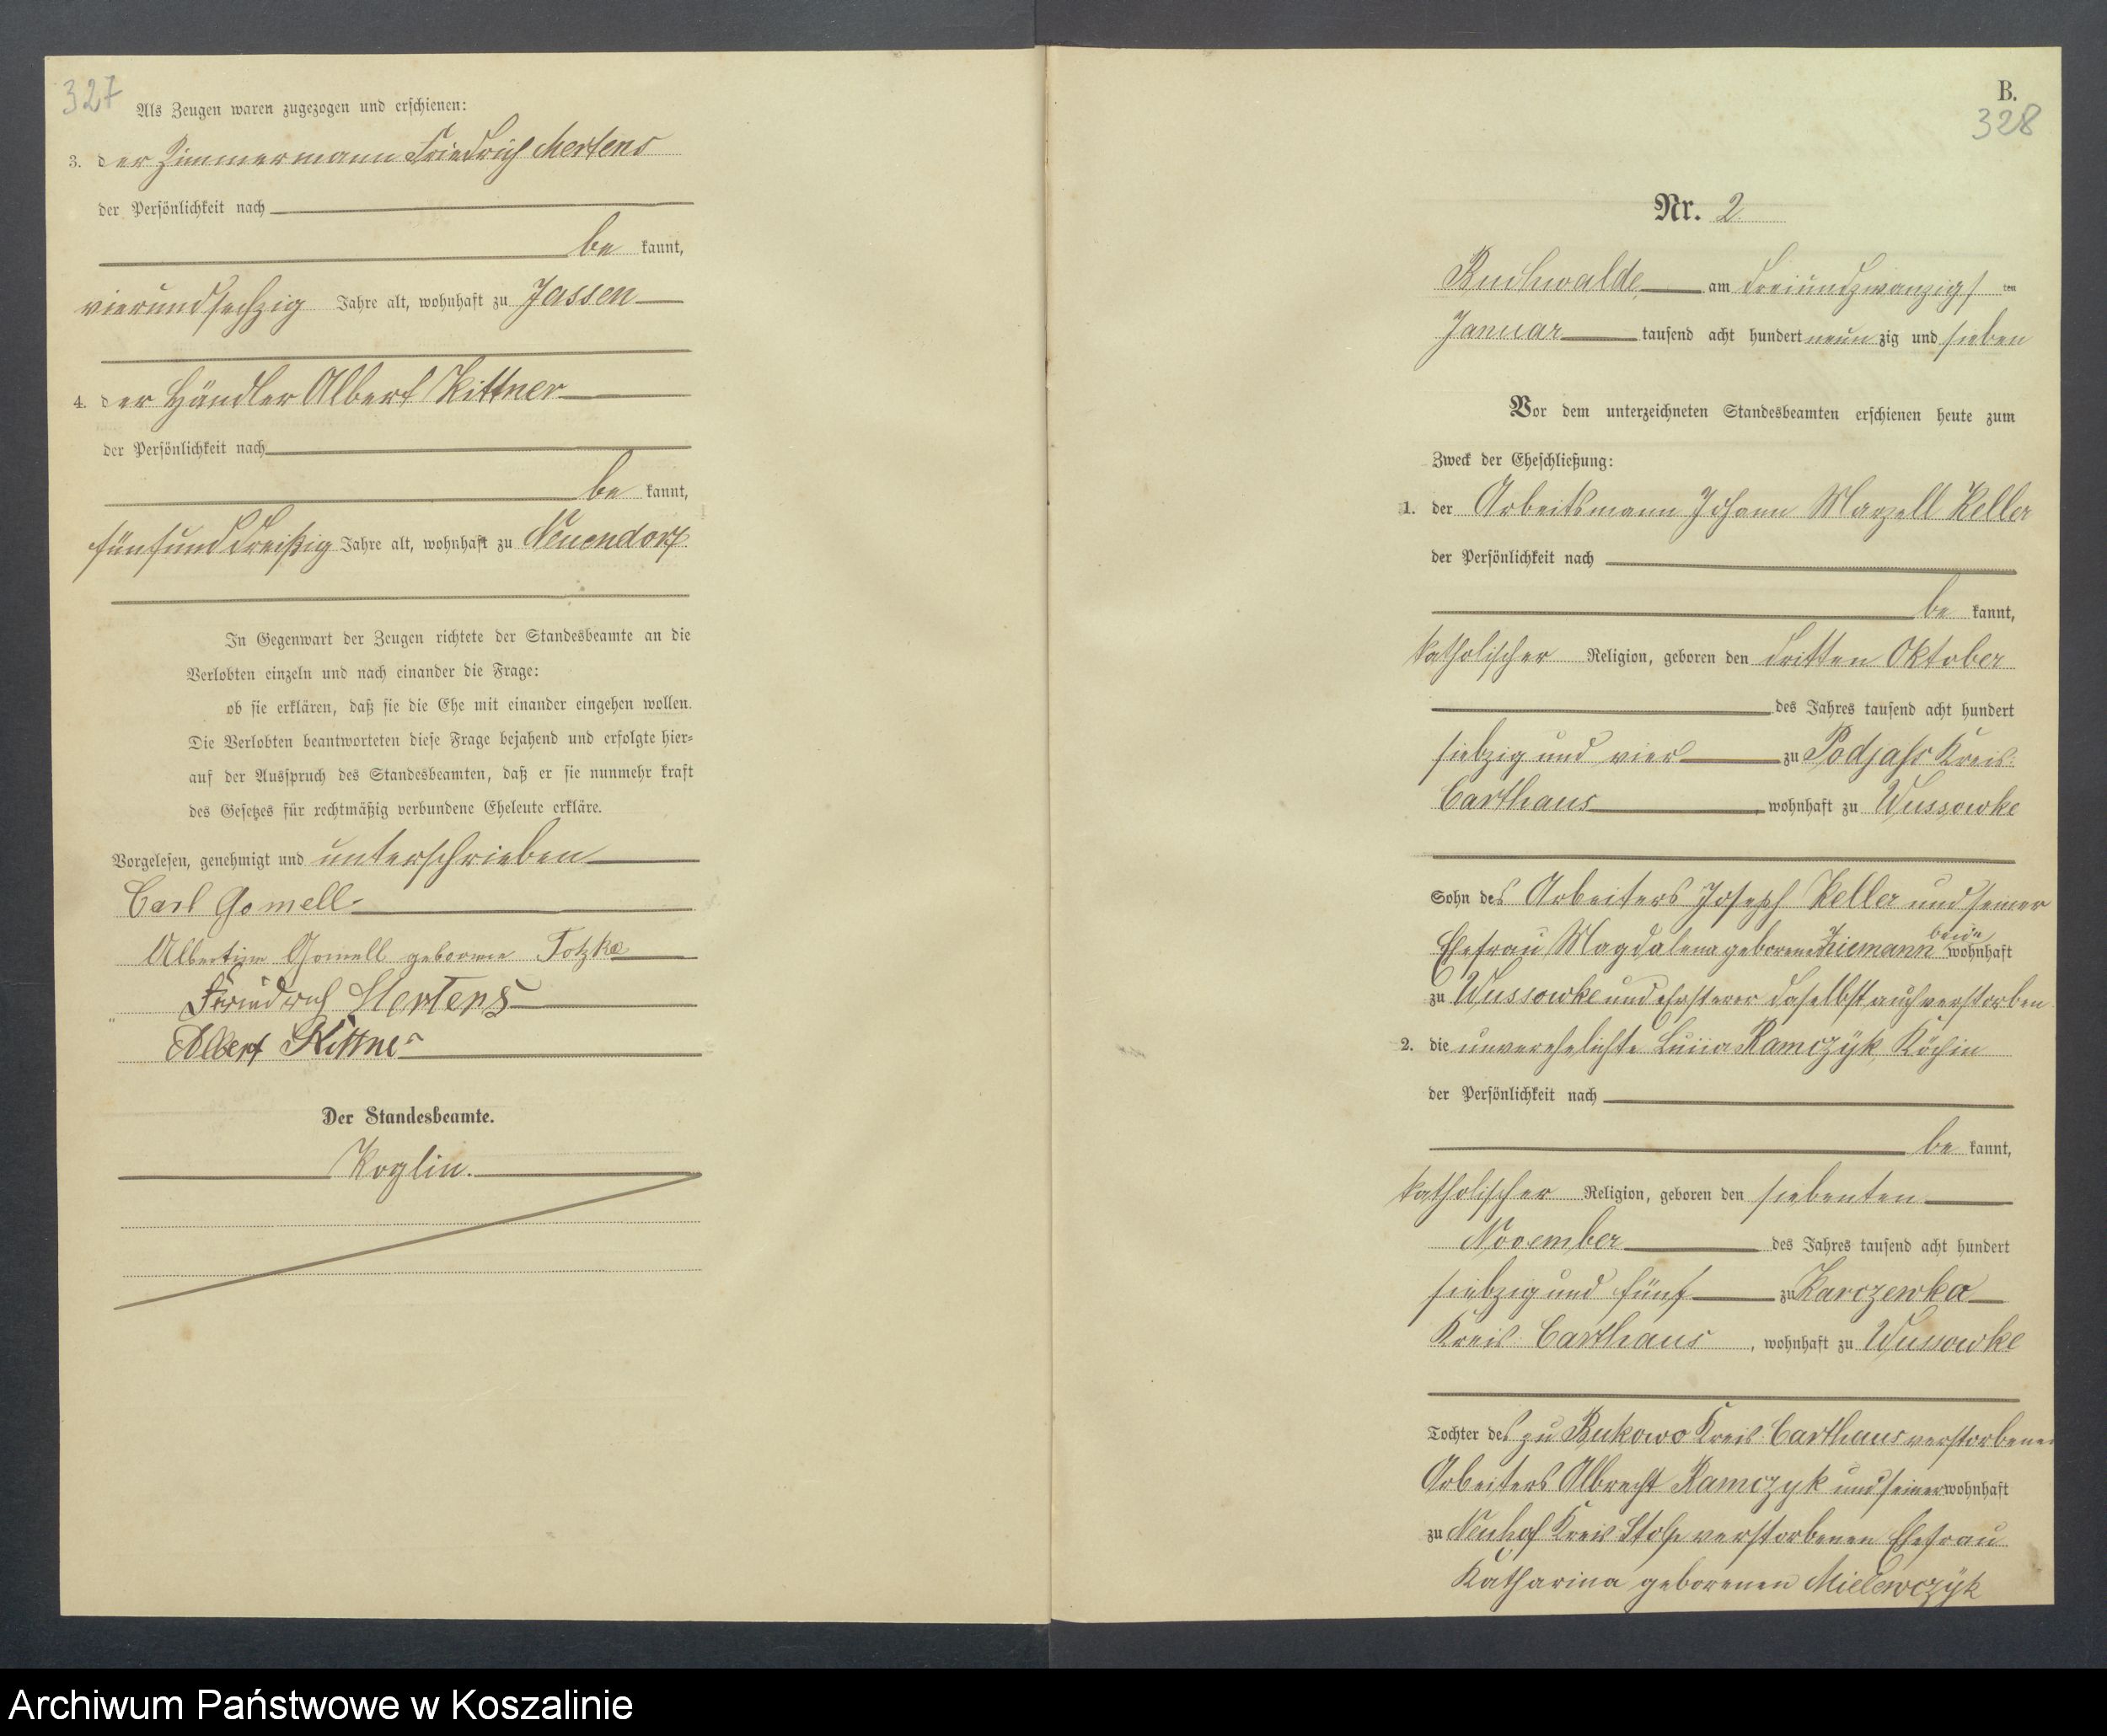 327
Als Zeugen waren zugezogen und erschienen:
3. der Zimmermann Friedrich Mertens
der Persönlichkeit nach
be kannt,
vierundsechzig Jahre alt, wohnhaft zu Jassen
4. der Händler Albert Kittner
der Persönlichkeit nach
be kannt,
fünfunddreißig Jahre alt, wohnhaft zu Neuendorf.
In Gegenwart der Zeugen richtete der Standesbeamte an die
Verlobten einzeln und nach einander die Frage:
ob sie erklären, daß sie die Ehe mit einander eingehen wollen.
Die Verlobten beantworteten diese Frage bejahend und erfolgte hier=
auf der Ausspruch des Standesbeamten, daß er sie nunmehr kraft
des Gesetzes für rechtmäßig verbundene Eheleute erkläre.
Vorgelesen, genehmigt und unterschrieben
Carl Gomell
Albertine Gomell geborene Totzke
Friedrich Mertens
Albert Kittner
Der Standesbeamte.
Koglin.
B.
328
Nr. 2
Buchwalde, am dreiundzwanzigs ten
Januar tausend acht hundert neun zig und sieben
Vor dem unterzeichneten Standesbeamten erschienen heute zum
Zweck der Eheschließung:
1. der Arbeitsmann Johann Marzell Keller
der Persönlichkeit nach
be kannt,
katholischer Religion, geboren den dritten Oktober
des Jahres tausend acht hundert
siebzig und vier zu Podjaß Kreis
Carthaus, wohnhaft zu Wussowke
Sohn des Arbeiters Joseph Keller und seiner
Ehefrau Magdalena geborene Ziemann beide wohnhaft
zu Wussowke und ersterer daselbst auch verstorben
2. die unverehelichte Köchin
der Persönlichkeit nach
be kannt,
katholischer Religion, geboren den siebenten
November des Jahres tausend acht hundert
siebzig und fünf zu Karczewka
Kreis Carthaus, wohnhaft zu Wussowke
Tochter des zu Bukowo Kreis Carthaus verstorbenen
Arbeiters Albrecht Ramczyk und seiner wohnhaft
zu Neuhof Kreis Stolp verstorbenen Ehefrau
Katharina geborenen Mielewczyk
Archiwum Państwowe w Koszalinie